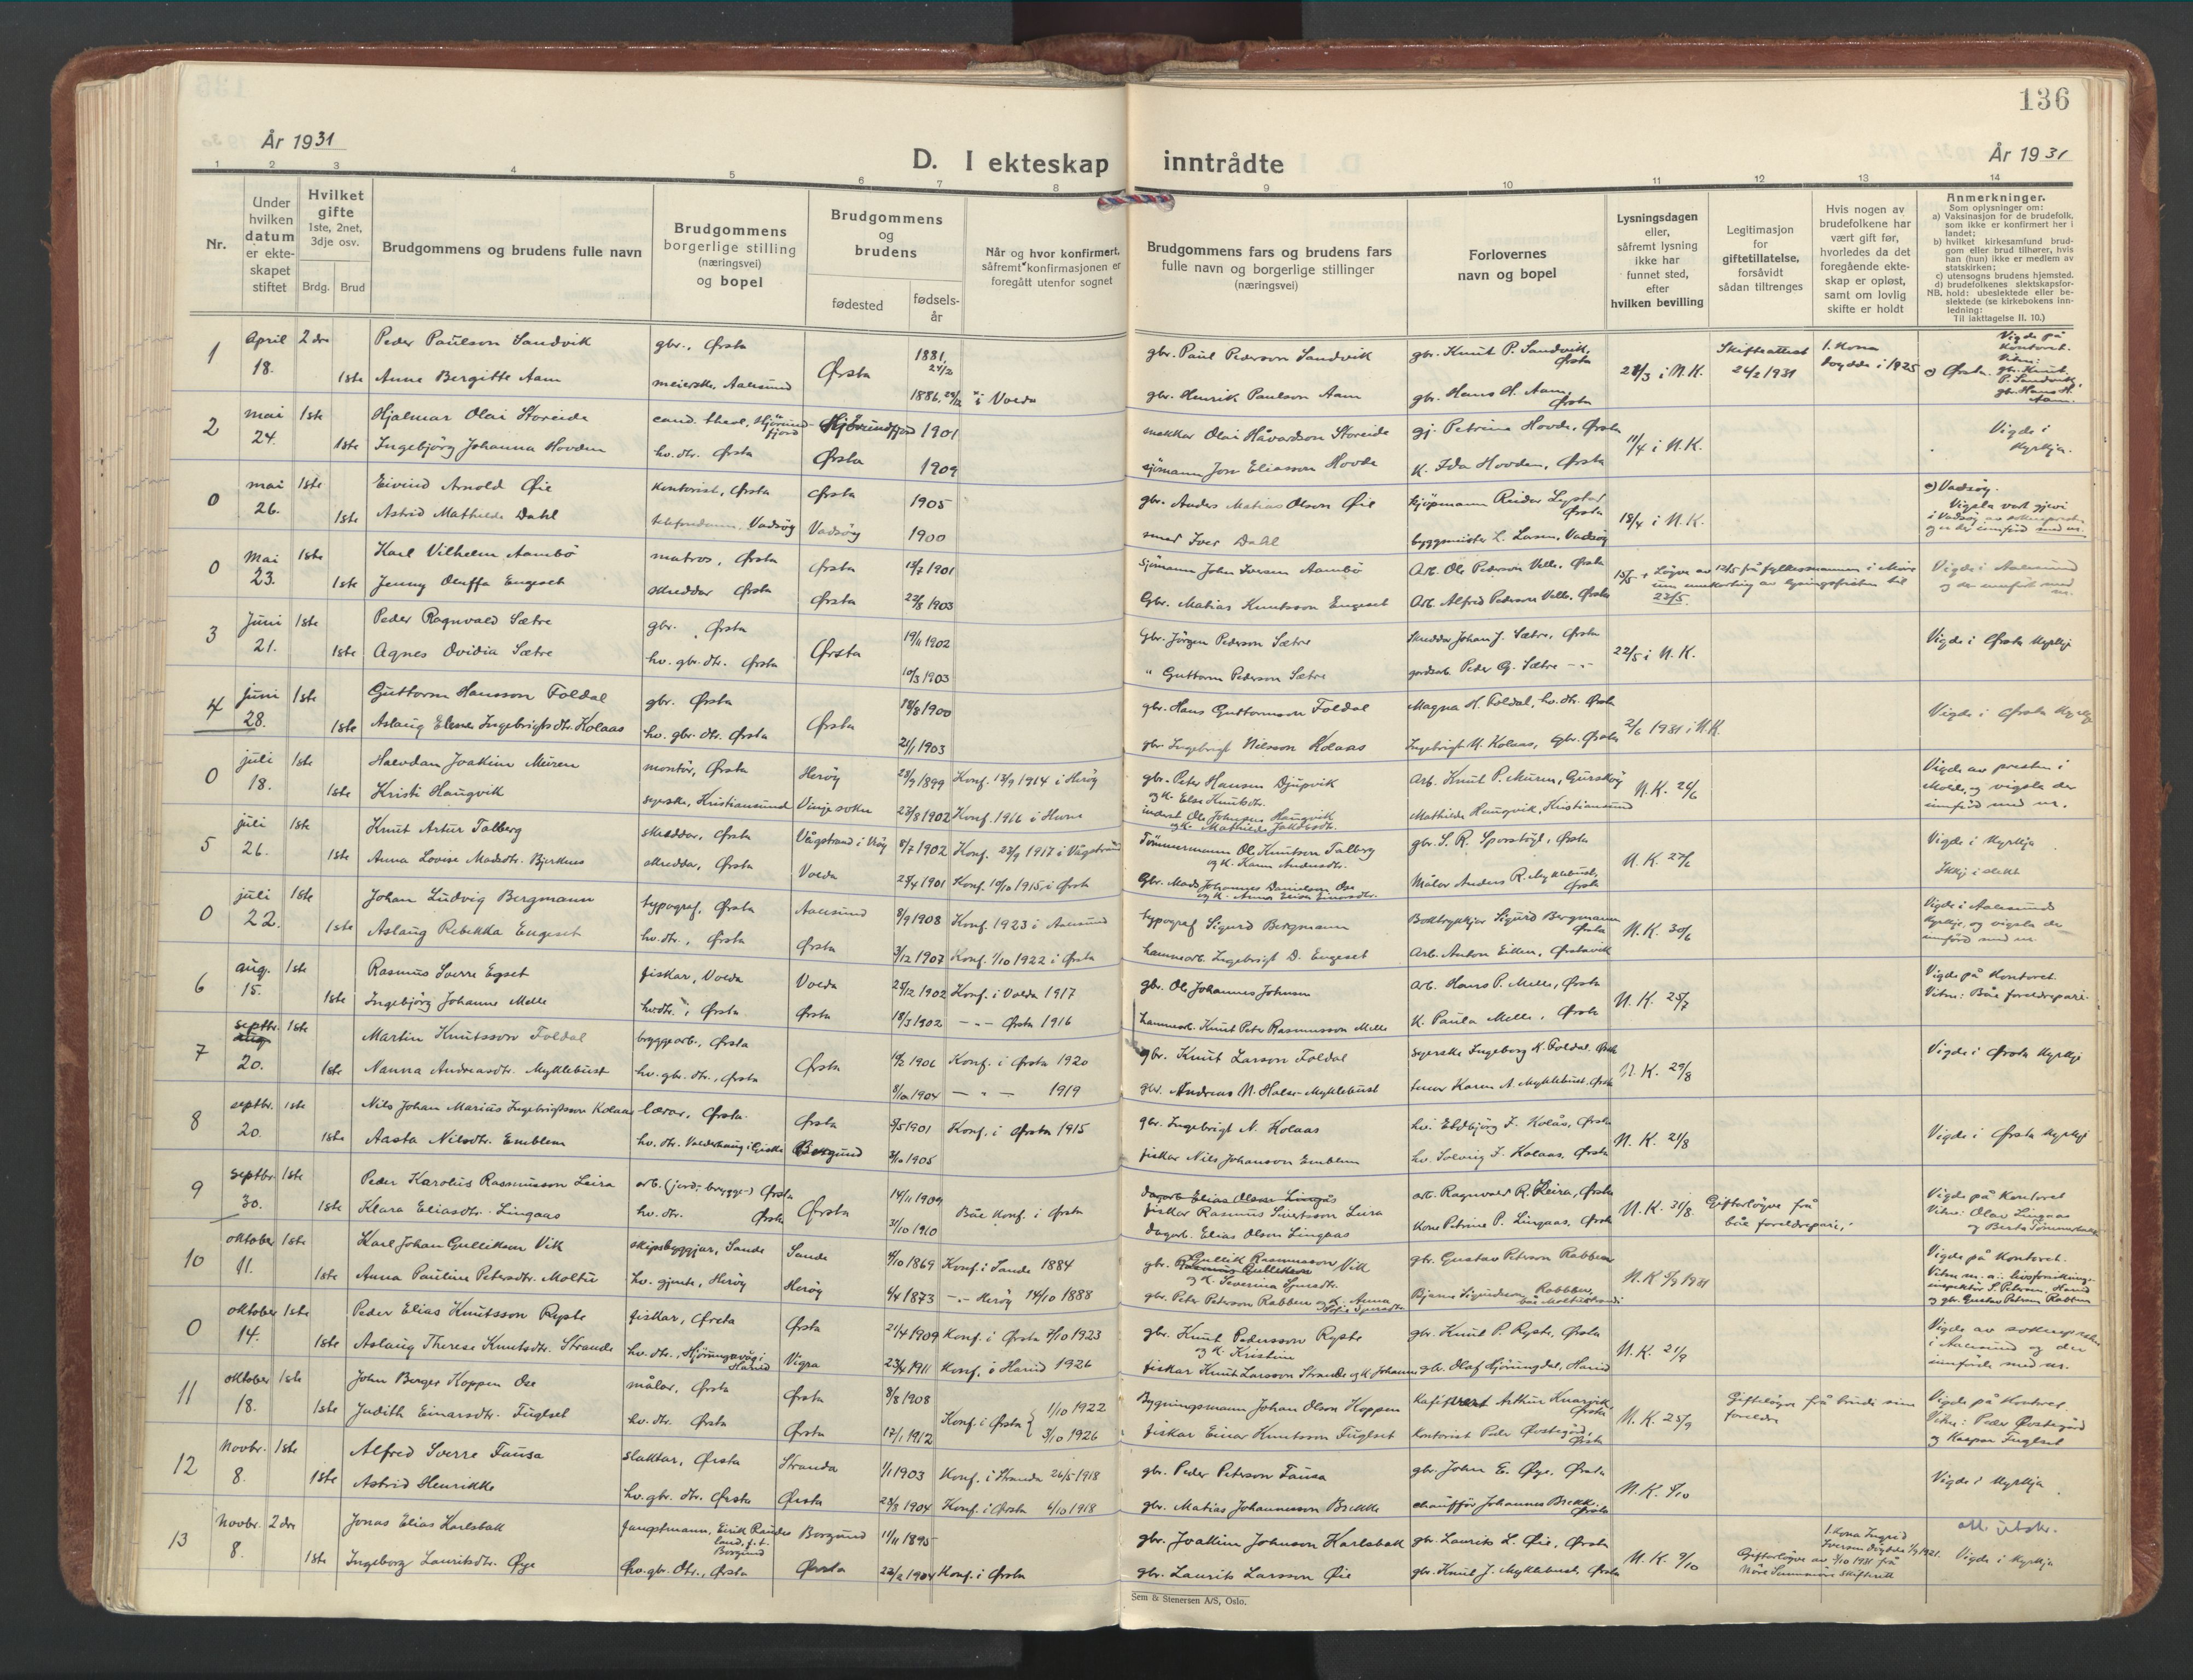 136
År 1931
D. I ekteskap inntrådte
År 1931
1 2 3 4 5 6 7 8 9 10 11 12 13 14
Nr.
Under hvilken datum er ekteskapet stiftet
Hvilket gifte
1ste, 2net, 3dje osv.
Brdg. Brud
Brudgommens og brudens fulle navn
Brudgommens borgerlige stilling (næringsvei) og bopel
Brudgommens og brudens
fødested
fødselsår
Når og hvor konfirmert, såfremt konfirmasjonen er foregått utenfor sognet
Brudgommens fars og brudens fars fulle navn og borgerlige stillinger (næringsvei)
Forlovernes navn og bopel
Lysningsdagen eller, såfremt lysning ikke har funnet sted, efter hvilken bevilling
Legitimasjon for giftetillatelse, forsåvidt sådan tiltrenges
Hvis nogen av brudefolkene har vært gift før, hvorledes da det foregående ekteskap er opløst, samt om lovlig skifte er holdt
Anmerkninger.
Som oplysninger om:
a) Vaksinasjon for de brudefolk, som ikke er konfirmert her i landet;
b) hvilket kirkesamfund brudgom eller brud tilhører, hvis han (hun) ikke er medlem av statskirken;
c) utensogns brudens hjemsted.
d) brudefolkenes slektskapsforhold: ubeslektede eller beslektede (se kirkebokens innledning:
NB. Til iakttagelse II. 10.)
1 April 18. 2dre Peder Paulson Sandvik gbr., Ørsta Ørsta 1881, 24/2 gbr. Paul Pederson Sandvik gbr. Knut P. Sandvik, Ørsta 28/3 i N.K. Skifteattest 24/2 1931 1. Kona døydde i 1925 c) Ørsta. Vigde på kontoret. Vitne: gbr. Knut P. Sandvik, gbr. Hans H. Aam.
1ste Anne Bergitte Aam meierske, Aalesund 1886, 29/12 i Volda gbr. Henrik Paulson Aam gbr. Hans H. Aam, Ørsta
2 mai 24. 1ste Hjalmar Olai Storeide cand. theol, Hjörundfjord Hjörundfjord 1901 mekkar Olai Håvardson Storeide gj. Petrine Hovde, Ørsta 11/4 i N.K. Vigde i kyrkja.
1ste Ingebjörg Johanna Hovden hv. dtr. Ørsta Ørsta 1909 sjömann Jon Eliasson Hovde K. Ida Hovden, Ørsta
0 mai 26. 1ste Eivind Arnold Øie kontorist, Ørsta Ørsta 1905 gbr. Anders Matias Olson Øie kjöpmann Reidar Ørsta 18/4 i N.K. c) Vadsöy. Vigsla vart gjevi i Vadsöy
1ste Astrid Mathilde Dahl Vadsöy Vadsöy 1900 smed Iver Dahl byggmeister L. Vadsöy
0 Mai 23. 1ste Karl Vilhelm Aambö matros, Ørsta Ørsta 13/7 1901 Sjömann John Iversen Aambö Arb. Ole Pederson Velle, Ørsta 15/5 + Løyve av 12/5 frå fylkesmannen i Möre um innkorting av lysingsfristen til 23/5. Vigde i Aalesund og der innfört med nr.
1ste Jenny Oluffa Engeset skreddar Ørsta Ørsta 22/8 1903 Gbr. Matias Knutsson Engeset Arb. Alfred Pederson Velle, Ørsta
3 Juni 21. 1ste Peder Ragnvald Sætre gbr. Ørsta Ørsta 19/11 1902 Gbr. Jörgen Pederson Sætre Skreddar Johan J. Sætre, Ørsta 22/5 i N.K. Vigde i Ørsta kyrkje
1ste Agnes Ovidia Sætre hv. gbr. dtr. Ørsta 10/3 1903 " Guttorm Pederson Sætre Peder G. Sætre -"-
4 juni 28. 1ste Guttorm Hansson Foldal gbr. Ørsta Ørsta 18/8 1900 gbr. Hans Guttormson Foldal Magna H. Foldal, hv. dtr. Ørsta 2/6 1931 i N.K. Vigde i Ørsta kyrkje
1ste Aslaug Elene Ingebrigtsdtr. Kolaas hv. gbr. dtr. Ørsta 21/1 1903 gbr Ingebrigt Nilsson Kolaas Ingebrigt N. Kolaas, Gbr. Ørsta
0 juli 18. 1ste Halvdan Joakim Muren montör, Ørsta Heröy 28/9 1899 Konf. 13/9 1914 i Heröy gbr. Peter Hansen Djupvik og k. Else Knutsdtr. Arb. Knut P. Muren, Gurskøy N.K. 26/6 Vigde av presten i Molde, og vigsla der innförd med nr.
1ste Kristi Haugvik syerske, Kristiansund Vinje sokn 23/8 1902 Konf. 1916 i Hevne inderst Ole Johnsen Haugvik og k. Mathilde Jakobsdtr. Mathilde Haugvik, Kristiansund
5 juli 26. 1ste Knut Artur Talberg skreddar, Ørsta Vågstrand i Vöy 8/7 1902 Konf. 27/9 1917 i Vågstrand Tömmermann Ole Knutson Talberg og k. Karen Andersdtr. gbr. S. R. Ørsta N.K. 27/6 Vigde i kyrkja
1ste Anna Lovise Madsdtr. Bjerknes skreddar, Ørsta Volda 25/4 1901 Konf. 10/10 1915, i Ørsta Gbr. Mads Johannes Danielson Ose Målar Anders R. Myklebust, Ørsta Ikkj i slekt
0 juli 22. 1ste Johan Ludvig Bergmann typograf, Ørsta Aalesund 8/9 1908 Konf. 1923 i Aalesund typograf Sigurd Bergmann Boktrykkjar Sigurd Bergmann Ørsta N.K. 30/6 Vigde i Aalesunds kyrkje, og vigsla der innförd med nr
1ste Aslaug Rebekka Engeset hv. dtr., Ørsta Ørsta 3/12 1907 Konf. 1/10 1922 i Ørsta hamnearb. Ingebrigt D. Engeset Arb. Anton Eiken, Ørstavik
6 aug. 15. 1ste Rasmus Sverre Egset fiskar, Volda Volda 25/12 1902 Konf. i Volda 1917 gbr. Ole Johannes Johnsen arb. Hans P. Melle, Ørsta N.K. 25/7 Vigde på kontoret. Vitne: Båe foreldrepari.
1ste Ingebjörg Johanne Melle hv. dtr., Ørsta Ørsta 18/3 1902 -"- Ørsta 1916 hamnearb. Knut Peter Rasmusson Melle K. Paula Melle, Ørsta
7 septbr. aug 20. 1ste Martin Knutsson Foldal bryggearb., Ørsta Ørsta 19/2 1906 Konf. i Ørsta 1920 gbr. Knut Larson Foldal syerske Ingeborg K. Foldal. Ørsta N.K. 29/8 Vigde i Ørsta kyrkje
1ste Nanna Andreasdtr. Myklebust hv. gbr. dtr., Ørsta 8/10 1904 - " - 1919 gbr. Andreas N. Myklebust Karen A. Myklebust, Ørsta
8 septbr. 20. 1ste Nils Johan Marius Ingebrigtsson Kolaas lærar, Ørsta. Ørsta 9/5 1901 Konf. i Ørsta 1915 gbr. Ingebrigt N. Kolaas hv. Eldbjörg I. Kolås, Ørsta N.K. 21/8 Vigde i Ørsta kyrkje
1ste Aasta Nilsdtr. Emblem hv. dtr. Valderhaug i Giske Borgund 3/10 1905 fiskar Nils Johanson Emblem hv. Solveig I. Kolaas, Ørsta
9 septbr 30. 1ste Peder Karolus Rasmusson Leira arb. (jord-, brygge-) Ørsta Ørsta 14/11 1909 Båe konf. i Ørsta dagarb Elias Olson Lingås fiskar Rasmus Sivertsson Leira arb. Ragnvald R. Leira, Ørsta N.K. 31/8. Gifterløyve frå båe foreldrepari. Vigde på kontoret Vitne: Olav Lingaas og Berta
1ste Klara Eliasdtr. Lingaas hv. dtr. Ørsta 31/10 1910 dagarb. Elias Olson Lingaas Kone Petrine P. Lingaas, Ørsta
10 oktober 11. 1ste Karl Johan Gulliksen Vik skipsbyggjar, Sande Sande 4/10 1869 Konf. i Sande 1884 gbr. Gullik Rasmusson Vik og k. Severina gbr. Gustav Peterson Rabben N.K 5/9 1931 Vigde på kontoret.
1ste Anna Pauline Petersdtr. Moltu hv. gjente, Heröy Heröy 4/4 1873 -"- Heröy 14/10 1888 gbr. Peter Peterson Rabben og k. Anna Bjarne Sigurdson, Rabben, båe Moltustrandi og gbr. Gustav Peterson Rabben
0 oktober 14. 1ste Peder Elias Knutsson Ryste fiskar, Ørsta Ørsta 21/4 1909 Konf. i Ørsta 7/10 1923 gbr. Knut Pedersson Ryste og k. Kristine gbr. Knut P. Ryste, Ørsta N.K. 21/9 Vigde av sokneprest i Aalesund og der innförde med nr.
1ste Aslaug Therese Knutsdtr. Strande hv. dtr., Hjörungavåg i Hareid Vigra 23/4 1911 Konf. i Hareid 1926 fiskar Knut Larsson Strande og k. Johanne gbr. Olaf Hjörungdal, Hareid
11 oktober 18. 1ste John Berger Hoppen Ose målar, Ørsta Ørsta 8/8 1908 Konf. i Ørsta { 1/10 1922 Bygningsmann Johan Olson Hoppen Kafévert Arthur Knarvik, Ørsta N.K. 25/9 Gifteløyve frå brudi sine foreldre Vigde på kontoret. Vitne: Peder Øvstegård og Kaspar Fuglset
1ste Judith Einarsdtr. Fuglset hv. dtr. Ørsta Ørsta 17/1 1912 3/10 1926 fiskar Einar Knutsson Fuglset Kontorist Peder Øvstegård, Ørsta
12 Novbr. 8. 1ste Alfred Sverre Fausa slaktar, Ørsta Stranda 1/1 1903 Konf. i Stranda 26/5 1918 gbr. Peder Peterson Fausa gbr. John E. Øye, Ørsta N.K. 9/10 Vigde i kyrkja
1ste Astrid Henrikke hv. gbr. dtr. Ørsta Ørsta 25/3 1904 Konf. i Ørsta 6/10 1918 gbr. Matias Johannesson Brekke chauffør Johannes Brekke, Ørsta
13 Novbr. 8. 2dre Jonas Elias Karlsbakk fangstmann, Eirik Raudes land, f.t. Borgund Borgund 11/11 1895 gbr. Joakim Johnson Karlsbakk gbr. Laurits L. Øie, Ørsta N.K. 9/10 Gifterløyve av 3/10 1931 frå Nöre Sunnmöre skifterett 1. Kona Ingrid Iversen døydde 1/9 1921. att. utskr. Vigde i kyrkja
1ste Ingeborg Lauritsdtr. Øye hv. gbr. dtr., Ørsta Ørsta 22/2 1904 Konf. i Ørsta gbr. Laurits Larsson Øie gbr. Knut J. Myklebust, Ørsta
Sem & Stenersen A/S, Oslo.